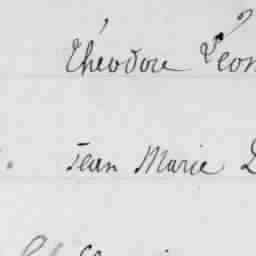 Théodore Léon
Jean Marie